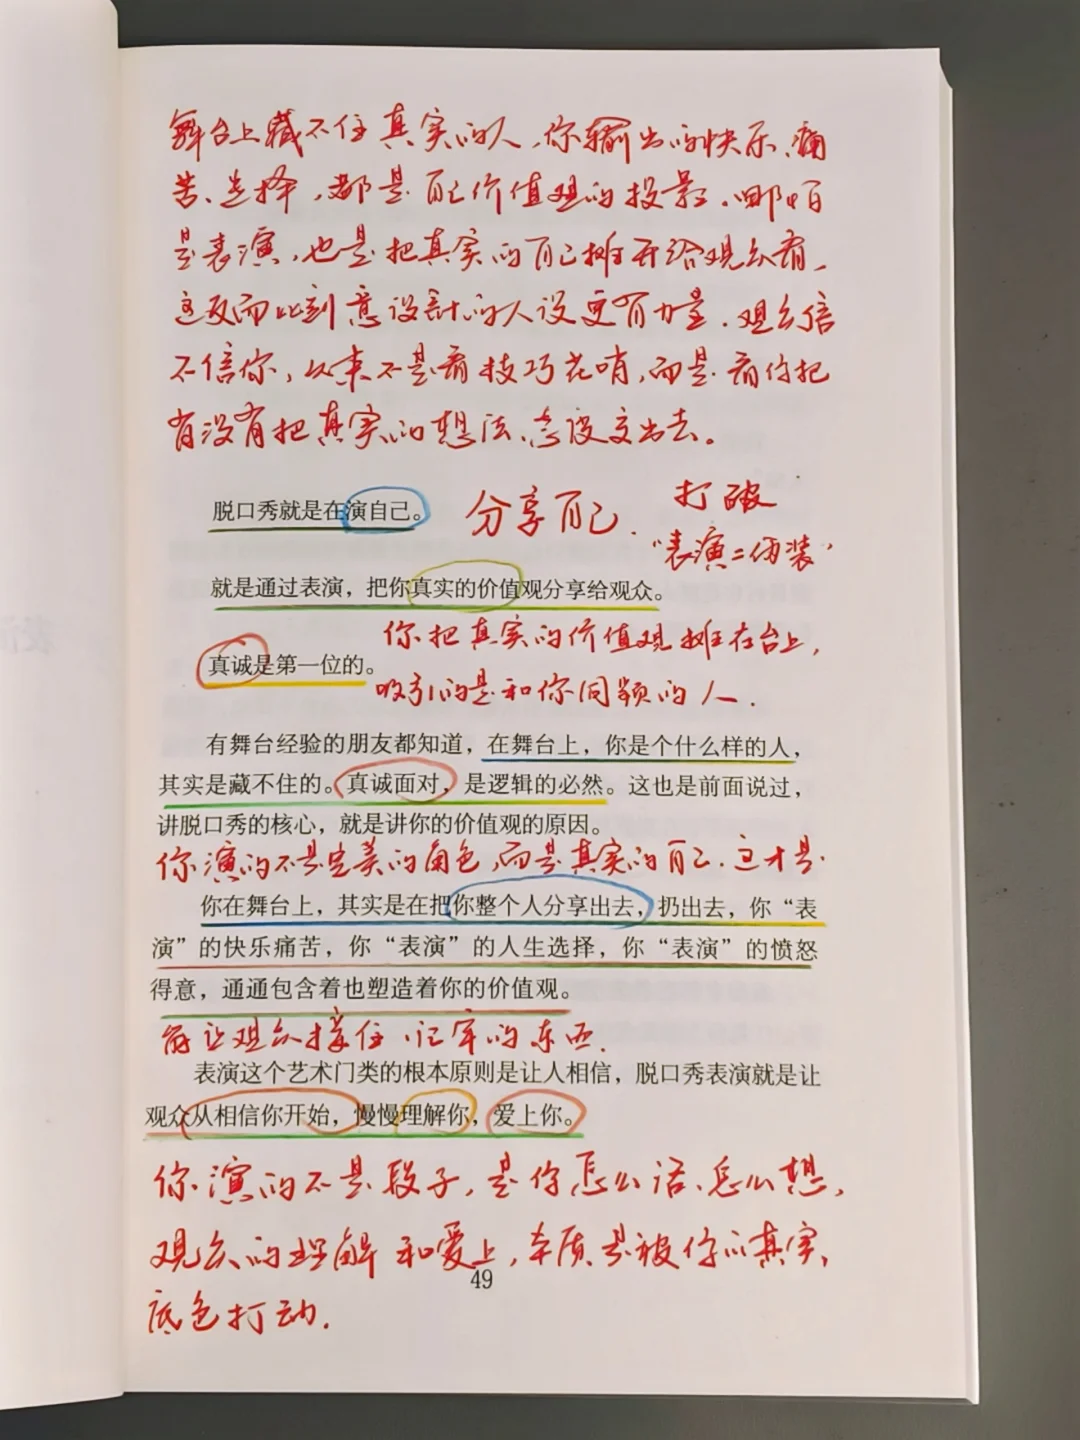 舞台上藏不住真实的人,你输出的快乐、痛
苦、选择,都是自己价值观的投影。哪怕
是表演,也是把真实的自己摊开给观众看,
这反而比刻意设计的人设更有力量。观众信
不信你,从来不是看技巧花哨,而是看你把
有没有把真实的想法、态度交出去。
脱口秀就是在演自己。
分享自己.
打破
“表演=伪装”
就是通过表演,把你真实的价值观分享给观众。
你把真实的价值观摊在台上,
真诚是第一位的。
吸引的是和你同频的人.
有舞台经验的朋友都知道,在舞台上,你是个什么样的人,
其实是藏不住的。真诚面对,是逻辑的必然。这也是前面说过,
讲脱口秀的核心,就是讲你的价值观的原因。
你演的不是完美的角色,而是真实的自己.这才是
你在舞台上,其实是在把你整个人分享出去,扔出去,你“表
演”的快乐痛苦,你“表演”的人生选择,你“表演”的愤怒
得意,通通包含着也塑造着你的价值观。
能让观众接住、记牢的东西.
表演这个艺术门类的根本原则是让人相信,脱口秀表演就是让
观众从相信你开始,慢慢理解你,爱上你。
你演的不是段子,是你怎么活、怎么想,
观众的理解和爱上,本质是被你的真实
底色打动.
49